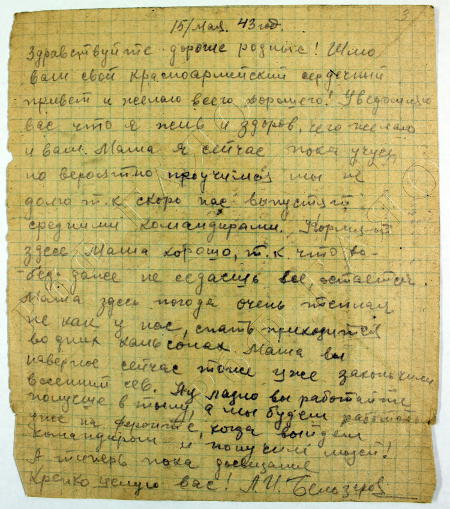 15/мая. 43 год.
Здравствуйте дорогие родные! Шлю
вам свой красноармейский сердечный
привет и желаю всего хорошего! Уведомляю
вас что я жив и здоров, чего желаю
и вам. Маша я сейчас пока учусь
но вероятно проучимся мы не
долго т.к скоро нас выпустят
средними командирами. Кормят
здесь Маша хорошо, т.к что во
обед даже не съедаешь все, остается.
Маша здесь погода очень теплая
не как у нас, спать приходится
в одних кальсонах. Маша вы
наверное сейчас тоже уже закончили
весенний сев. Ну ладно вы работайте
получше в тылу, а мы будем работать
уже на фронте, когда выйдем
командиром и получим людей!
А теперь пока досвидание
Крепко целую вас! А.И.